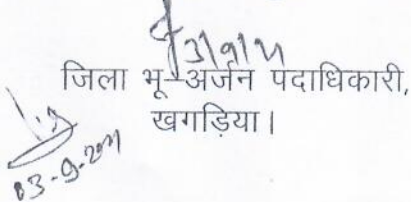 जिला भू-अर्जन पदाधिकारी,
खगड़िया।
03-9-2011